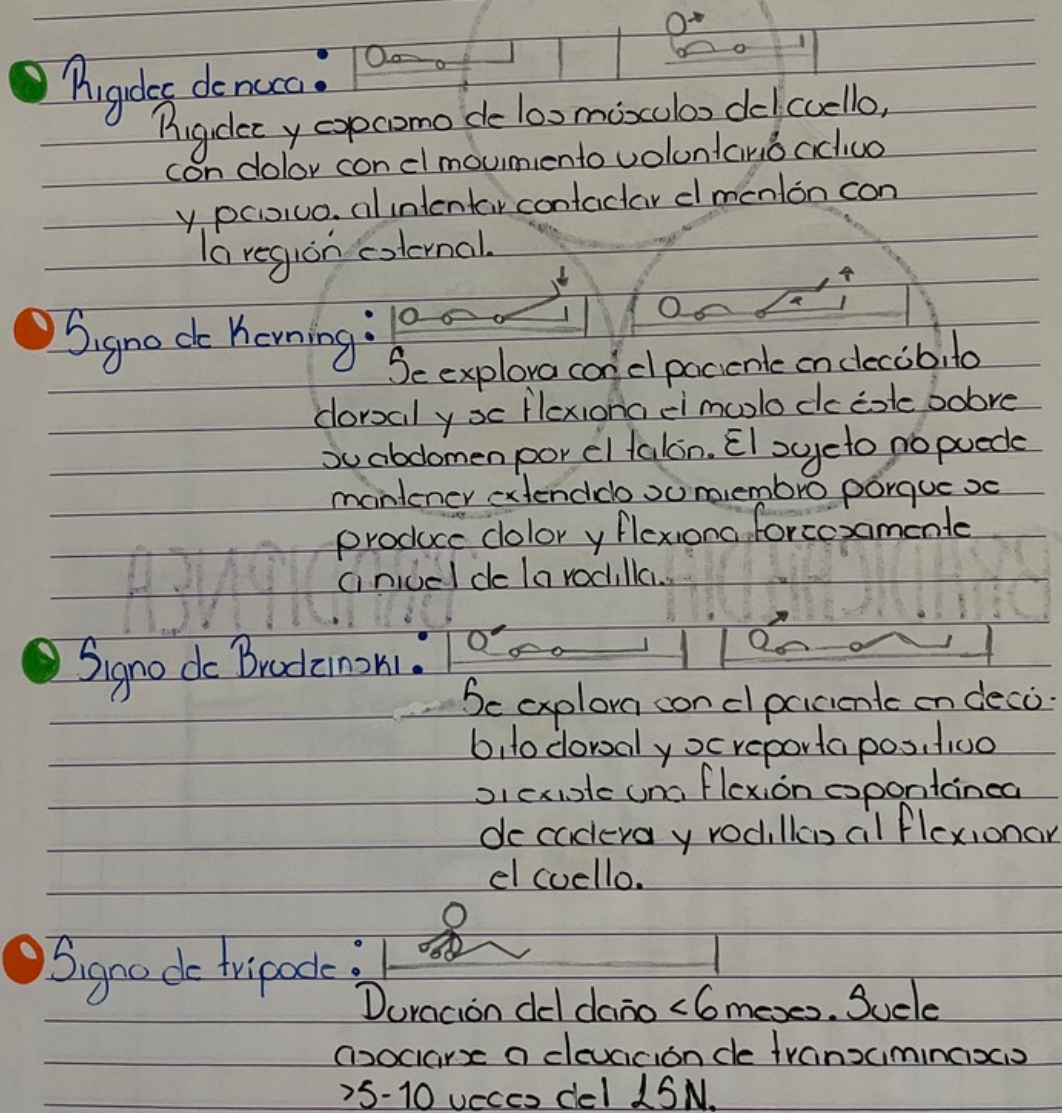 Rigidez de nuca:
Rigidez y espasmo de los músculos del cuello,
con dolor con el movimiento voluntario activo
y pasivo. al intentar contactar el mentón con
la región esternal.
Signo de Kerning:
Se explora con el paciente en decúbito
dorsal y se flexiona el muslo de éste sobre
su abdomen por el talón. El sujeto no puede
mantener extendido su miembro porque se
produce dolor y flexiona forzosamente
a nivel de la rodilla.
Signo de Brudzinski:
Se explora con el paciente en decú-
bito dorsal y se reporta positivo
si existe una flexión espontánea
de cadera y rodillas al flexionar
el cuello.
Signo de trípode:
Duración del daño <6 meses. Suele
asociarse a elevación de transaminasas
>5-10 veces del LSN.